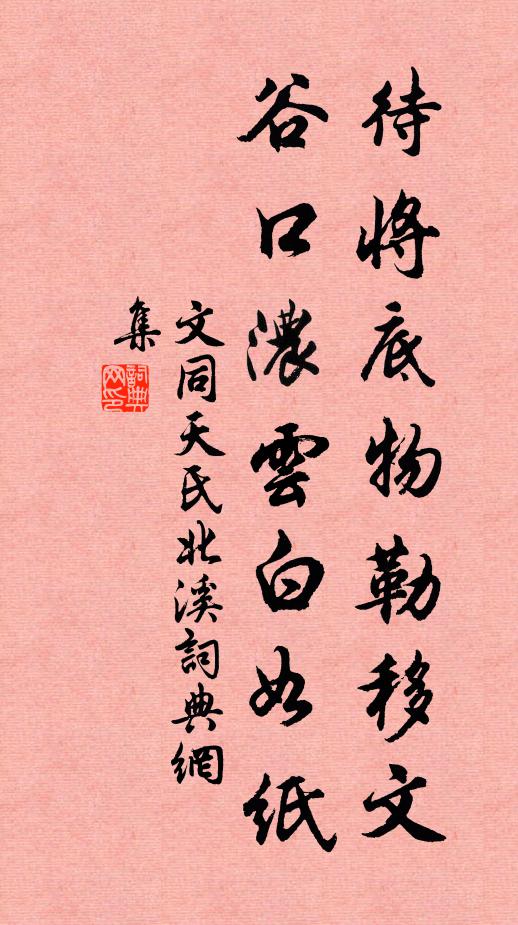 待將底物勒移文
谷口濃雲白如紙
文同天氏北溪詞典網
集
詞典網印